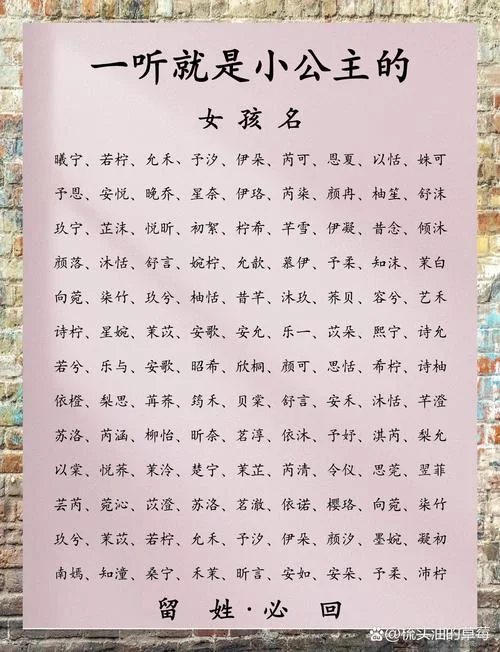 一听就是小公主的
女孩名
曦宁、若柠、允禾、予汐、伊朵、芮可、恩夏、以恬、姝可
予恩、安悦、晚乔、星奈、伊珞、芮柒、颜冉、柚笙、舒沫
玖宁、芷沫、悦昕、初絮、柠希、芊雪、伊凝、昔念、倾沐
颜落、沐恬、舒言、婉柠、允歆、慕伊、予柔、知沫、茉白
向菀、柒竹、玖兮、柚恬、昔芊、沐玖、荞贝、容兮、艺禾
诗柠、星婉、茉苡、安歌、安允、乐一、苡朵、熙宁、诗允
若兮、乐与、安歌、昭希、欣桐、颜可、思恬、希柠、诗柚
依橙、梨思、苒荞、筠禾、贝棠、舒言、安禾、沐恬、芊澄
苏洛、芮涵、柳怡、昕奈、茗淳、依沐、予妤、淇芮、梨允
以棠、悦荞、茉泠、楚宁、茉芷、芮清、令仪、思莞、翌菲
芸芮、菀沁、苡澄、苏洛、茗澈、依诺、樱珞、向菀、柒竹
玖兮、茉苡、若柠、允禾、予汐、伊朵、颜汐、墨婉、凝初
南嫣、知潼、桑宁、禾茉、昕言、安如、安朵、予柔、沛柠
留姓·必回
@梳头油的草莓